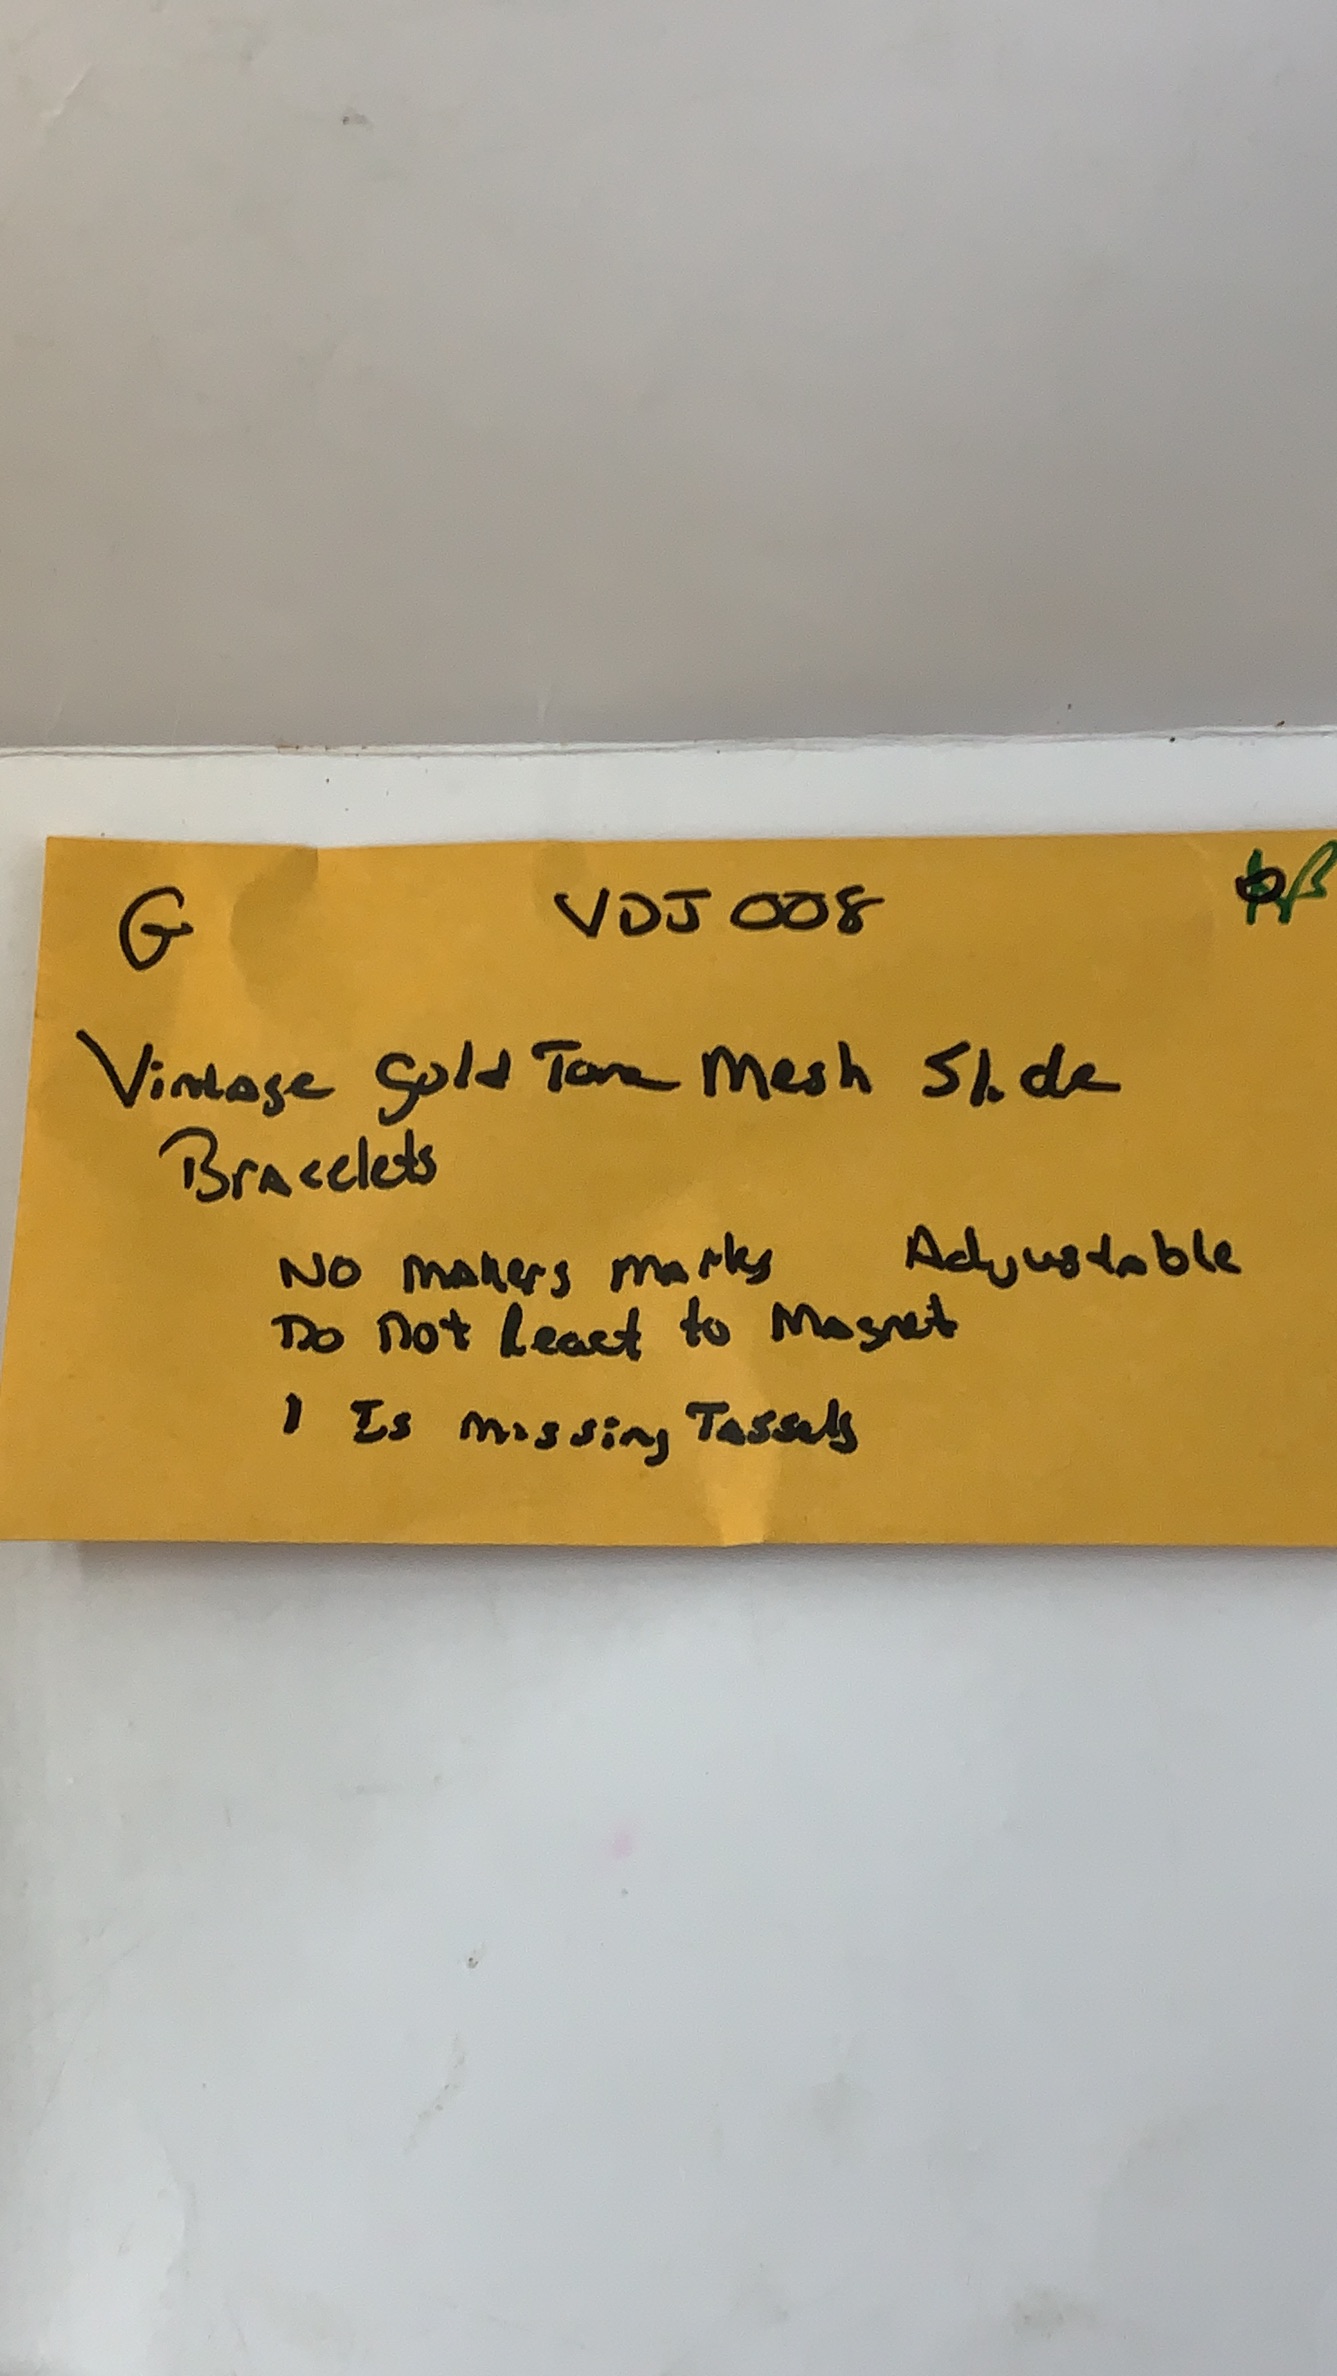 G VDJ 008
Vintage Gold Tone Mesh Slide
Bracelets
No makers marks Adjustable
Do Not React to Magnet
1 Is missing Tassels